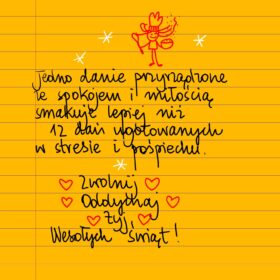 jedno danie przyrządzone
ze spokojem i miłością
smakuje lepiej niż
12 dań ugotowanych
w stresie i pośpiechu.
Zwolnij
Oddychaj
Żyj
Wesołych świąt!